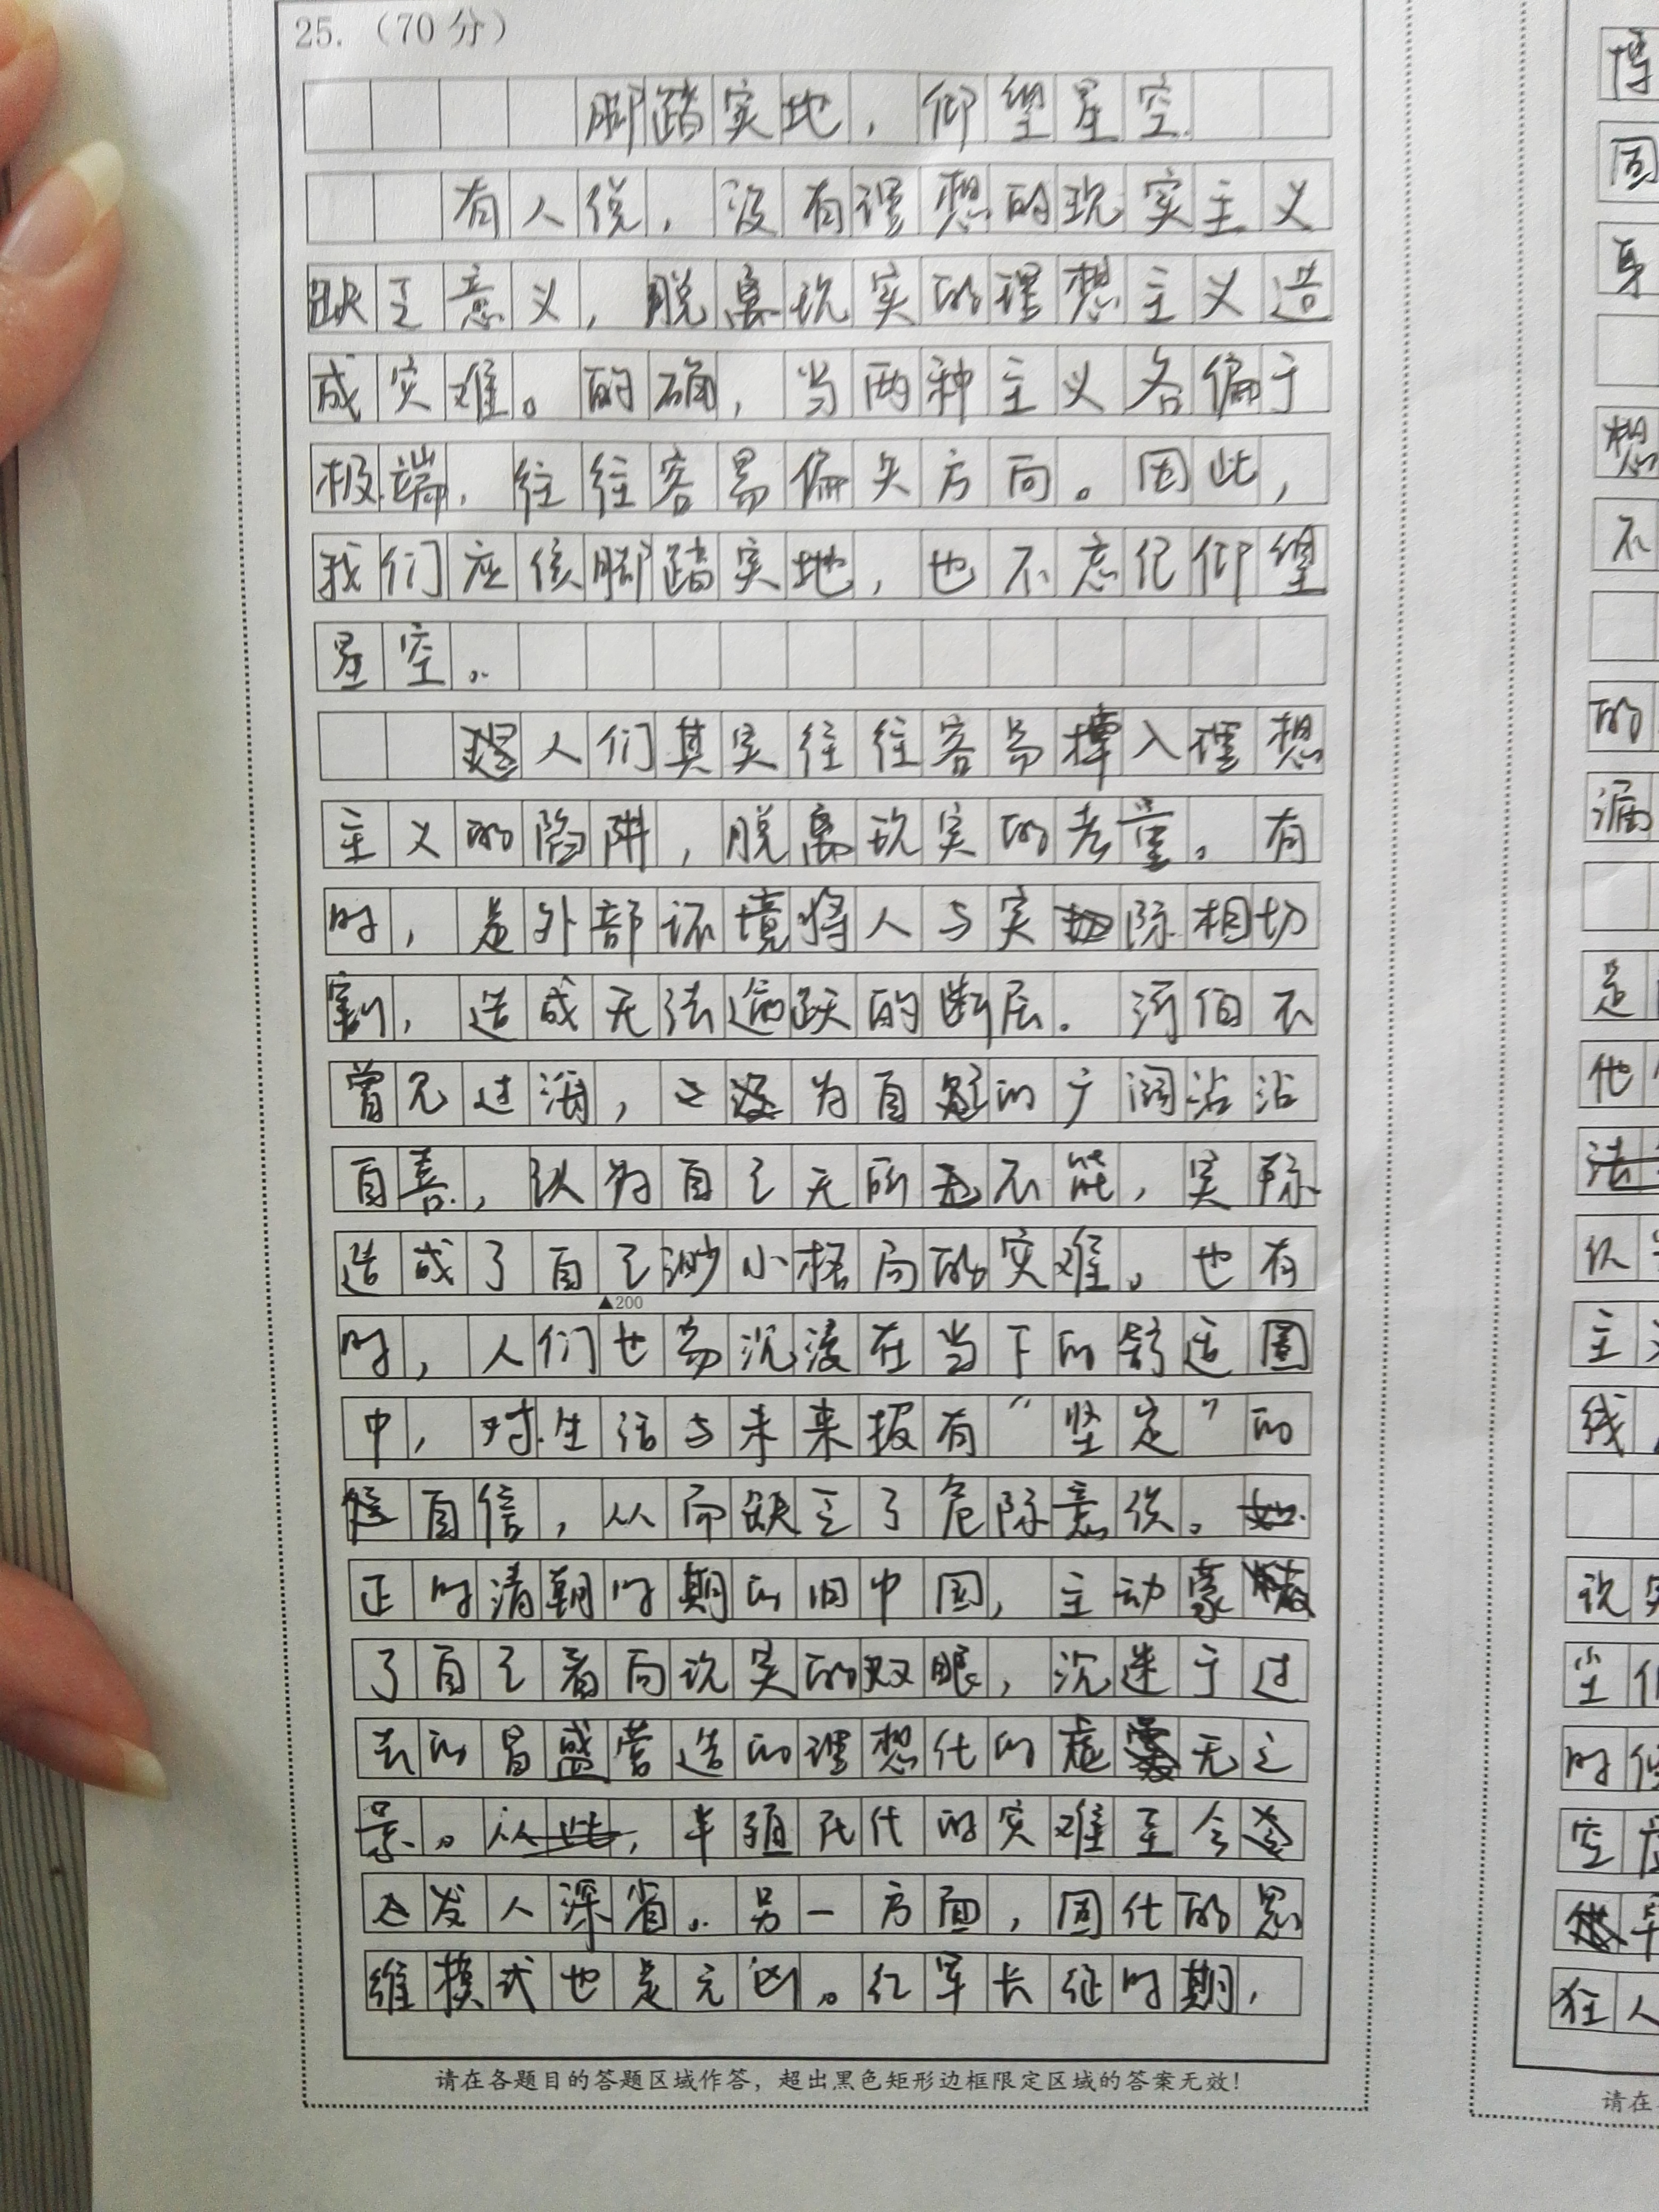 25.（70分）
脚踏实地，仰望星空
有人说，没有理想的现实主义
缺乏意义，脱离现实的理想主义造
成灾难。的确，当两种主义各偏于
极端，往往容易偏失方向。因此，
我们应该脚踏实地，也不忘记仰望
星空。
人们其实往往容易掉入理想
主义的陷阱，脱离现实的考量。有
时，是外部环境将人与实际相切
割，造成无法逾越的断层。河伯不
曾见过海，为自己的广阔沾沾
自喜，认为自己无所不能，实际
造成了自己渺小格局的灾难。也有
▲200
时，人们也易沉浸在当下的舒适圈
中，对生活与未来报有“坚定”的
自信，从而缺乏了危际意识。
正时清朝时期的旧中国，主动蒙蔽
了自己看向现实的双眼，沉迷于过
去的昌盛营造的理想化的虚无之
景。半殖民代的灾难至今
发人深省。另一方面，固化的思
维模式也是元凶。红军长征时期，
请在各题目的答题区域作答，超出黑色矩形边框限定区域的答案无效！
博
固
身
想
不
的
漏
是
他
主
线
说
尘
时
空
狂人
请在